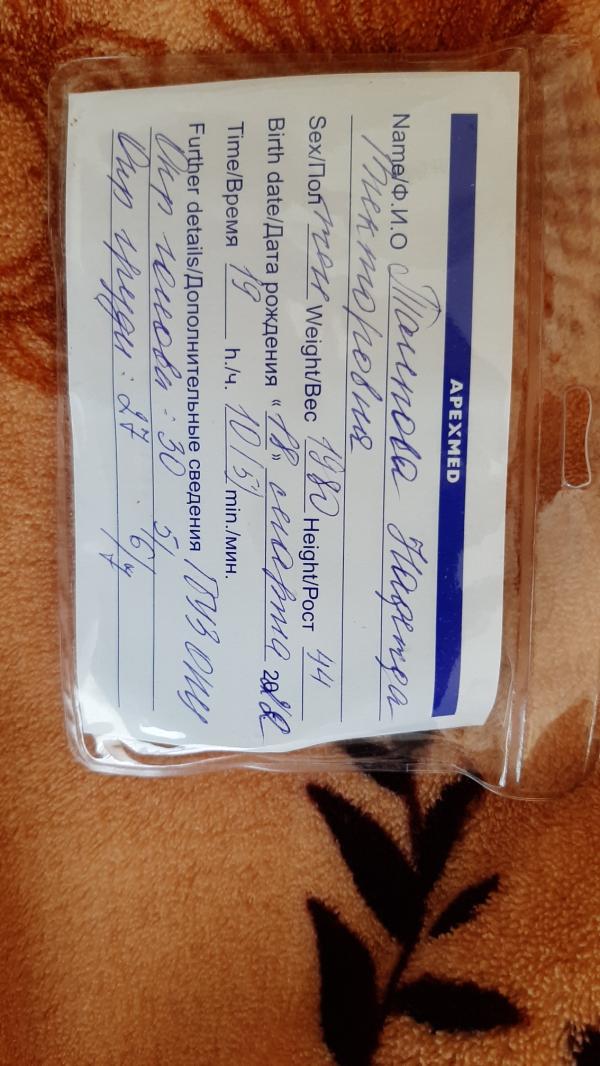 APEXMED
Name/Ф.И.О Надежда
Викторовна
Sex/Пол жен Weight/Вес 1980 Height/Рост 44
Birth date/Дата рождения “18” марта
Time/Время 19 h./ч. 10 min./мин.
Further details/Дополнительные сведения
Окр головы : 30 5/6/7
Окр груди : 27